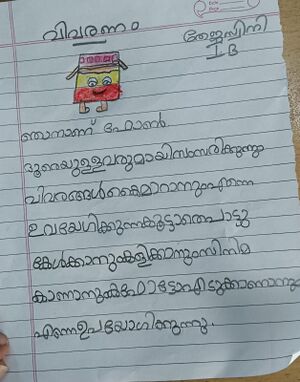 വിവരണം
തേജസ്വിനി
I B
ഞാനാണ് ഫോൺ
ദൂരെയുള്ളവരുമായിസംസരിക്കുന്നും
വിവരങ്ങൾകൈമാറാനുംഎന്നെ
ഉപയോഗിക്കുന്നുകൂടാതെപാട്ടു
കേൾക്കാനുംകളിക്കാനുംസിനിമ
കാണാനുംഫോട്ടോഎടുക്കാനൊന്നും
എന്നെഉപയോഗിക്കുന്നു.